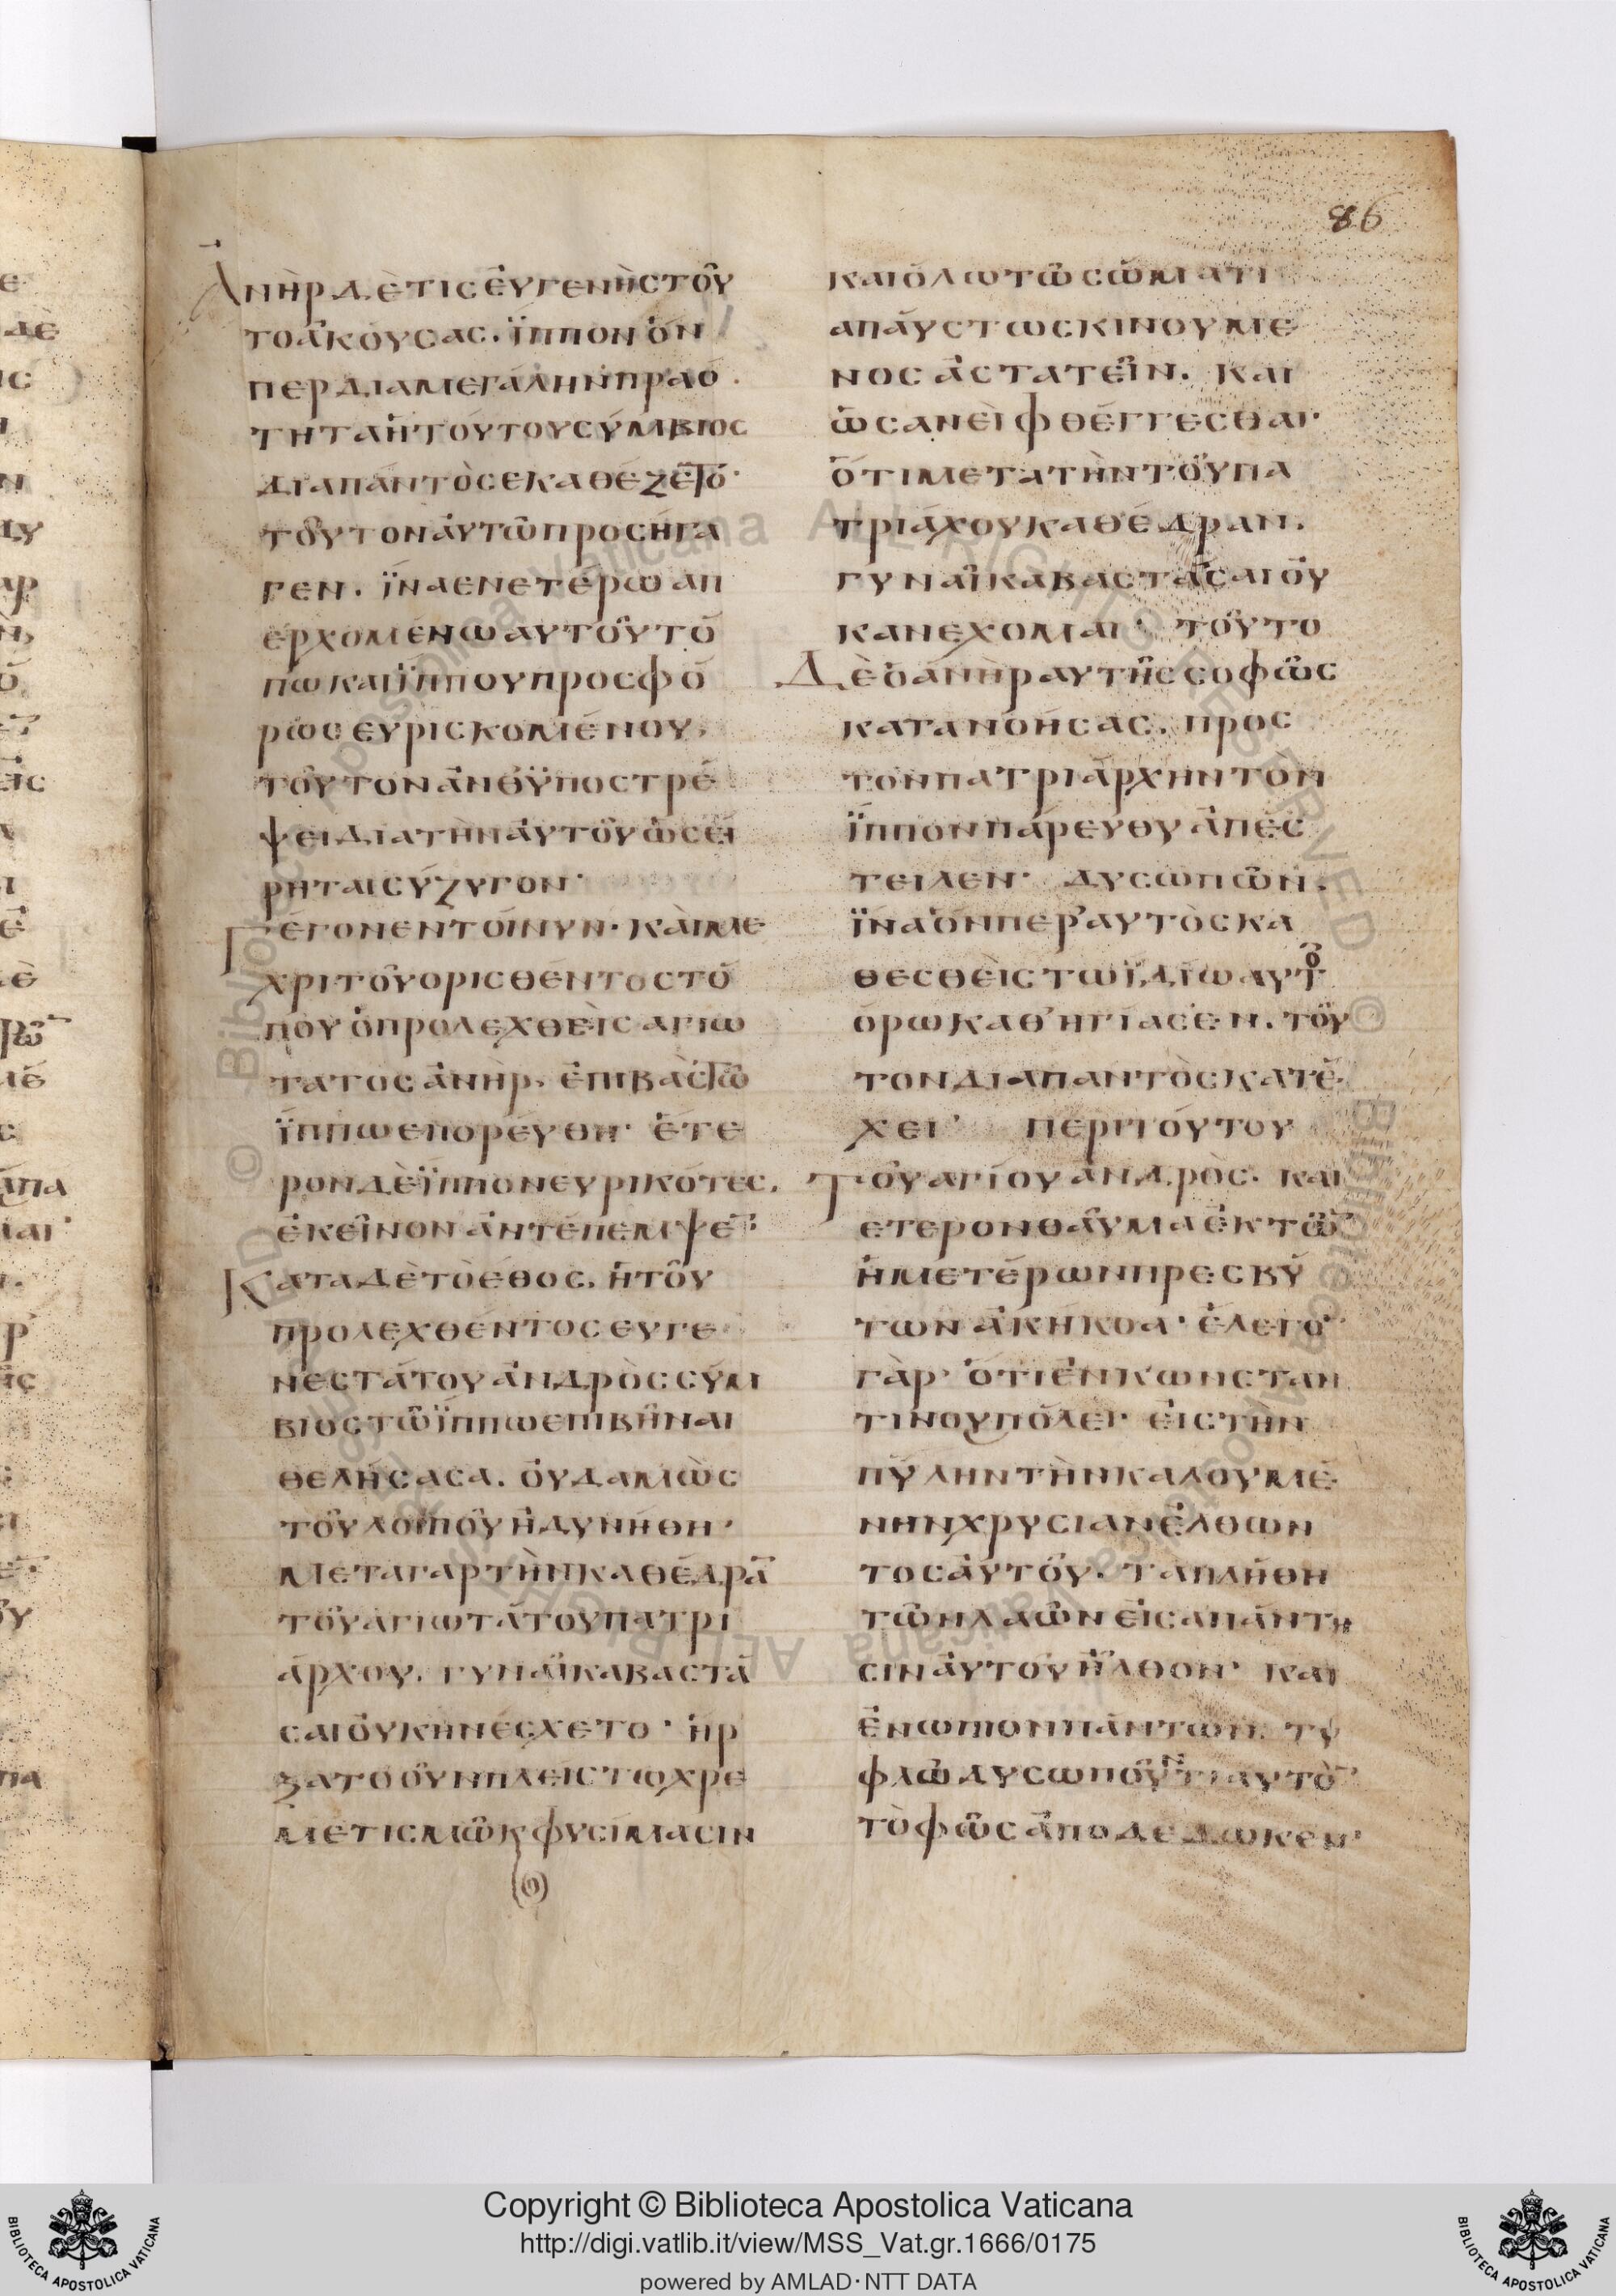 86
ἈΝῊΡΔΈΤΙϹΕΥ̓ΓΕΝῊϹΤΟΥ͂
ΤΟἈΚΟΎϹΑϹ. ΪΠΠΟΝ ὋΝ
ΠΕΡΔΙΑΜΕΓΆΛΗΝΠΡΑΟ
ΤΗΤΑἩΤΟΎΤΟΥϹΎΜΒΙΟϹ
ΔΙΑΠΑΝΤῸϹΕΚΑΘΈΖΕΤΟ·
ΤΟΥ͂ΤΟΝΑΥ̓ΤΩ͂ΠΡΟϹΉΓΑ
ΓΕΝ. ΪΝΑΕΝΕΤΈΡΩΑΠ
ΕΡΧΟΜΈΝΩΑΥΤΟΥ͂ΤΌ
ΠΩΚΑΙΪΠΠΟΥΠΡΟϹΦΌ
ΡΩϹΕΥΡΙϹΚΟΜΈΝΟΥ,
ΤΟΥ͂ΤΟΝἈΝΘΫΠΟϹΤΡΈ
ΨΕΙΔΙΑΤῊΝΑΥ̓ΤΟΥ͂ὩϹΕΊ
ΡΗΤΑΙϹΎΖΥΓΟΝ·
ΓΈΓΟΝΕΝΤΟΊΝΥΝ· ΚΑῚΜΕ
ΧΡΙΤΟΥ͂ΟΡΙϹΘΈΝΤΟϹΤΌ
ΠΟΥὉΠΡΟΛΕΧΘΕῚϹΑΓΙΩ
ΤΑΤΟϹἈΝῊΡ, ἘΠΙΒᾺϹΤΩ͂
ΪΠΠΩΕΠΟΡΕΎΘΗ· ἝΤΕ
ΡΟΝΔῈΪΠΠΟΝΕΥΡΙΚΌΤΕϹ.
ἘΚΕΙ͂ΝΟΝἈΝΤΈΠΕΜΨΕ̅:
ΚΑΤΑΔῈΤῸΈΘΟϹ, ἩΤΟΥ͂
ΠΡΟΛΕΧΘΈΝΤΟϹΕΥΓΕ
ΝΕϹΤΆΤΟΥἈΝΔΡῸϹϹΎΜ
ΒΙΟϹΤΩ͂ΪΠΠΩΕΠΙΒΗ͂ΝΑΙ
ΘΕΛΉϹΑϹΑ. ΟΥ̓ΔΑΜῺϹ
ΤΟΥ͂ΛΟΙΠΟΥ͂ἨΔΥΝΉΘΗ·
ΜΕΤΑΓΑΡΤῊΝΚΑΘΈΔΡΑ̅
ΤΟΥ͂ἉΓΙΩΤΆΤΟΥΠΑΤΡΙ
ΆΡΧΟΥ, ΓΥΝΑΙ͂ΚΑΒΑϹΤΆ
ϹΑΙΟΥ̓ΚΗΝΕϹΧΕΤΟ· ἨΡ
ΞΑΤΟΟΥ͂ΝΠΛΕΙϹΤΩΧΡΕ
ΜΕΤΙϹΜΩ͂Κ ΦΥϹΊΜΑϹΙΝ
ΚΑΙὉΛΩΤΩ͂ϹΏΜΑΤΙ
ΑΠΑΎϹΤΩϹΚΙΝΟΥΜΕ
ΝΟϹἈϹΤΑΤΕΙ͂Ν. ΚΑΙ
ὩϹΑΝΕῚΦΘΈΓΓΕϹΘΑΙ·
ὍΤΙΜΕΤΑΤῊΝΤΟΥ͂ΠΑ
ΤΡΙΆΧΟΥΚΑΘΈΔΡΑΝ.
ΓΥΝΑΙ͂ΚΑΒΑϹΤΆϹΑΙΟΥ̓
ΚΑΝΕΧΟΜΑΙ· ΤΟΥ͂ΤΟ
ΔῈὉἈΝῊΡΑΥΤΗ͂ϹϹΟΦΩ͂Ϲ
ΚΑΤΑΝΟΉϹΑϹ, ΠΡΟϹ
ΤΟΝΠΑΤΡΙΆΡΧΗΝΤΟΝ
ΪΠΠΟΝΠΆΡΕΥΘΥἈΠΈϹ
ΤΕΙΛΕΝ· ΔΥϹΩΠΩ͂Ν.
ΪΝΑὍΝΠΕΡΑΥΤῸϹΚΑ
ΘΕϹΘΕῚϹΤΩΪΔΊΩΑΥΤΟΥ͂
ΟΡΩΚΑΘ'ΗΓΊΑϹΕΝ. ΤΟΥ͂
ΤΟΝΔΙΑΠΑΝΤῸϹΚΑΤΈ
ΧΕΙ· ΠΕΡΙΤΟΎΤΟΥ
ΤΟΥ͂ΑΓΊΟΥἈΝΔΡῸϹ. ΚΑΙ
ΕΤΕΡΟΝΘΑΥ͂ΜΑἘΚΤΩ̅͂
ἩΜΕΤΈΡΩΝΠΡΕϹΒΥ
ΤΩΝἈΚΉΚΟΑ· ἜΛΕΓΟ̅
ΓᾺΡ· ὍΤΙἘΝΚΩΝϹΤΑΝ
ΤΙΝΟΥΠΌΛΕΙ· ΕἸϹΤῊΝ
ΠΎΛΗΝΤῊΝΚΑΛΟΥΜΈ
ΝΗΝΧΡΥϹΙΑΝἘΛΘΩΝ
ΤΟϹΑΥ̓ΤΟΥ͂. ΤΑΠΛΉΘΗ
ΤΩ͂ΝΛΑΩ͂ΝΕἸϹΑΠΆΝΤΗ
ϹΙΝΑΥ̓ΤΟΥ͂ἮΛΘΟΝ· ΚΑΙ
ἘΝΩΠΙΟΝΠΆΝΤΩΝ. ΤΥ
ΦΛΩ͂ΔΥϹΩΠΟΥ͂ΝΤΙΑΥΤῸ̅
ΤῸΦΩ͂ϹἈΠΟΔΕΔΩΚΕΝ·
Ε
ΔῈ
Copyright © Biblioteca Apostolica Vaticana
http://digi.vatlib.it/view/MSS_Vat.gr.1666/0175
powered by AMLAD·NTT DATA
BIBLIOTECA APOSTOLICA VATICANA
BIBLIOTECA APOSTOLICA VATICANA